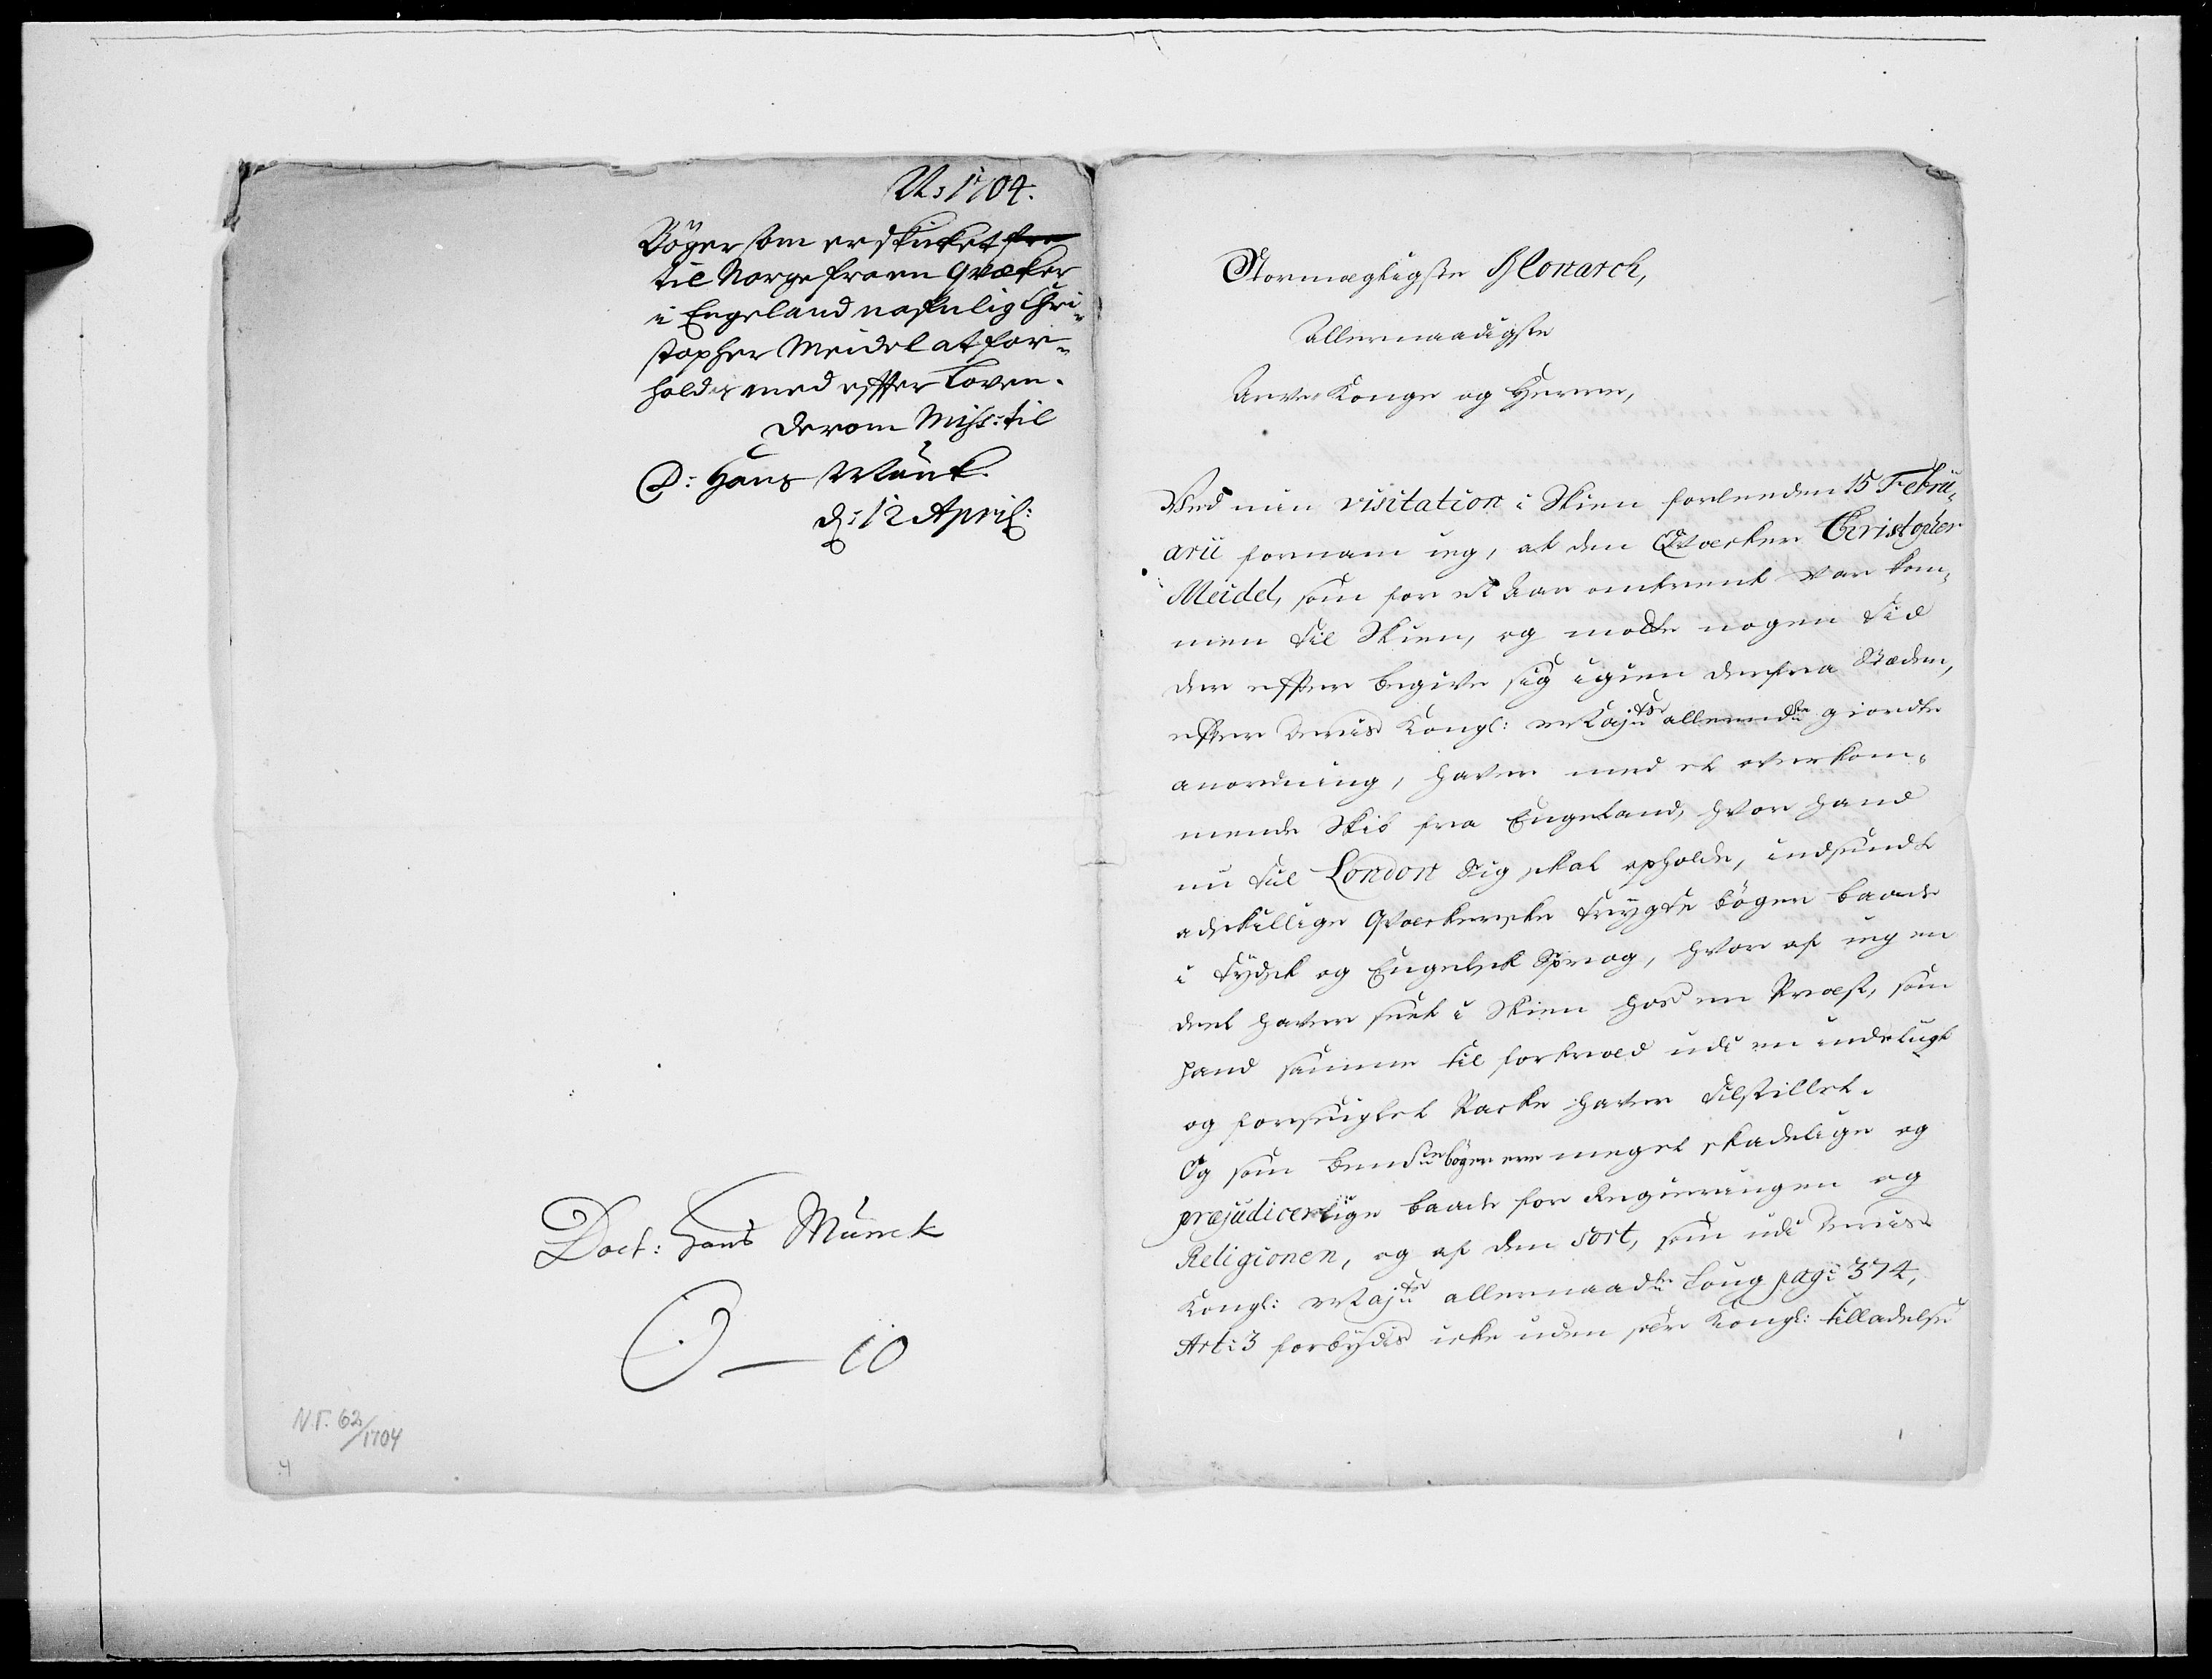 A: 1704.
Bøger som er skicket fra
til Norge fra en Qvæker
i Engeland nafnlig Chri-
stopher Meidel at for-
holdis med efter Loven.
Derom Miss: til
D: Hans Munk.
d: 12 April:
Doct: Hans Munck
O — 10
N.T. 62/1704
Stormægtigste Monarch,
Allernaadigste
Arve Konge og Herre,
Ved min visitation i Skien forleeden 15 Febru-
arii fornam ieg, at den Qvæcker Christopher
Meidel, som for et Aar omtrent var kom-
men til Skien, og motte nogen tid
der efter begive sig igien derfra Stæden,
efter Deris Kongl: Majts allernaadste giordte
anordning, haver med et overkom-
mende Skib fra Engeland, hvor hand
nu til London Sig skal opholde, indsendt
adskillige Qvæckerske trygte bøger baade
i Tydsk og Engelsk Sprog, hvor af ieg en
deel haver seet i Skien hos en Præst, som
hand samme til fortræd udi en indelugt
og forseiglet Packe haver tilstillet.
Og som bemte bøger ere meget skadelige og
præjudicerlige baade for Regieringen og
Religionen, og af den sort, som udi Deris
Kongl: Majts allernaadste Loug pag: 374,
Art: 3 forbydis icke uden sær Kongl: tilladelse